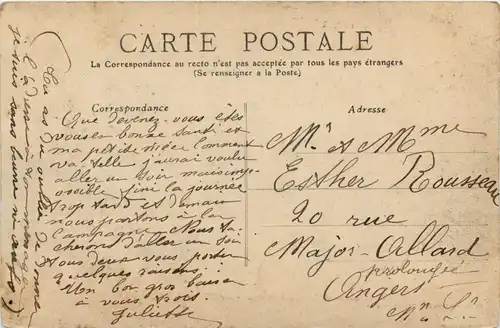 CARTE POSTALE
La Correspondance au recto n'est pas acceptée par tous les pays étrangers
(Se renseigner a la Poste)
Correspondance
Que devenez-vous êtes
vous en bonne santé et
ma petite nièce comment
va-t-elle j'aurai voulu
aller un soir mais impo
ossible fini la journée
trop tard et demain
nous partons à la
campagne. Nous ta
cherons d'aller un soir
tous deux vous porter
quelques raisins.
Un bon gros baiser
à vous trois.
Juliette
Tu as du oublié de donner
l'adresse à ton
je suis sans
Adresse
Mr et Mme
Esther Rousseau
20 rue
Major-Allard
prolongée
Angers
M. L.